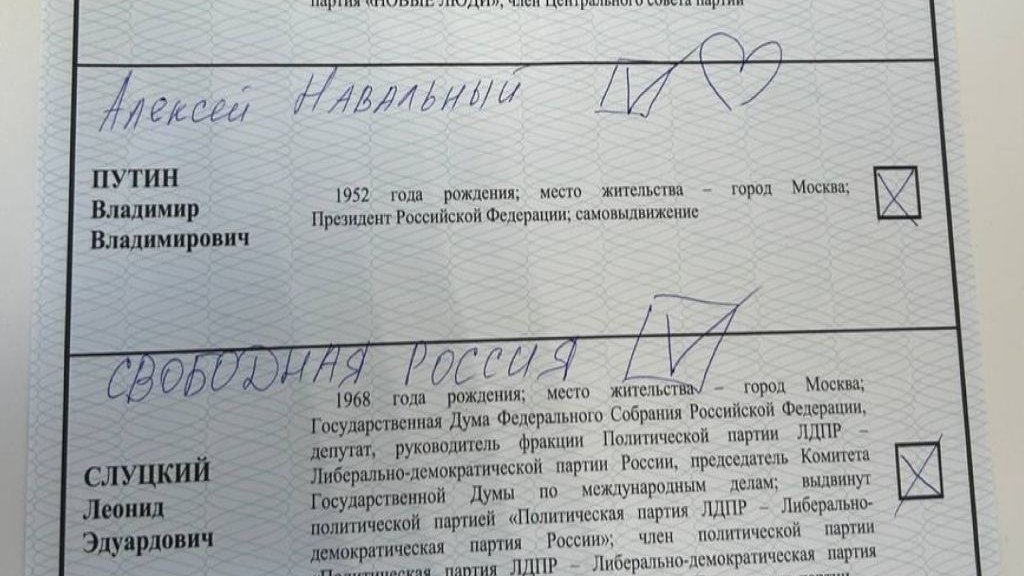 партия «НОВЫЕ ЛЮДИ», член Центрального совета партии
Алексей Навальный
ПУТИН
Владимир
Владимирович
1952 года рождения; место жительства – город Москва;
Президент Российской Федерации; самовыдвижение
СВОБОДНАЯ РОССИЯ
1968 года рождения; место жительства – город Москва;
Государственная Дума Федерального Собрания Российской Федерации,
депутат, руководитель фракции Политической партии ЛДПР –
Либерально-демократической партии России, председатель Комитета
Государственной Думы по международным делам; выдвинут
политической партией «Политическая партия ЛДПР – Либерально-
демократическая партия России»; член политической партии
«Политическая партия ЛДПР – Либерально-демократическая партия
СЛУЦКИЙ
Леонид
Эдуардович